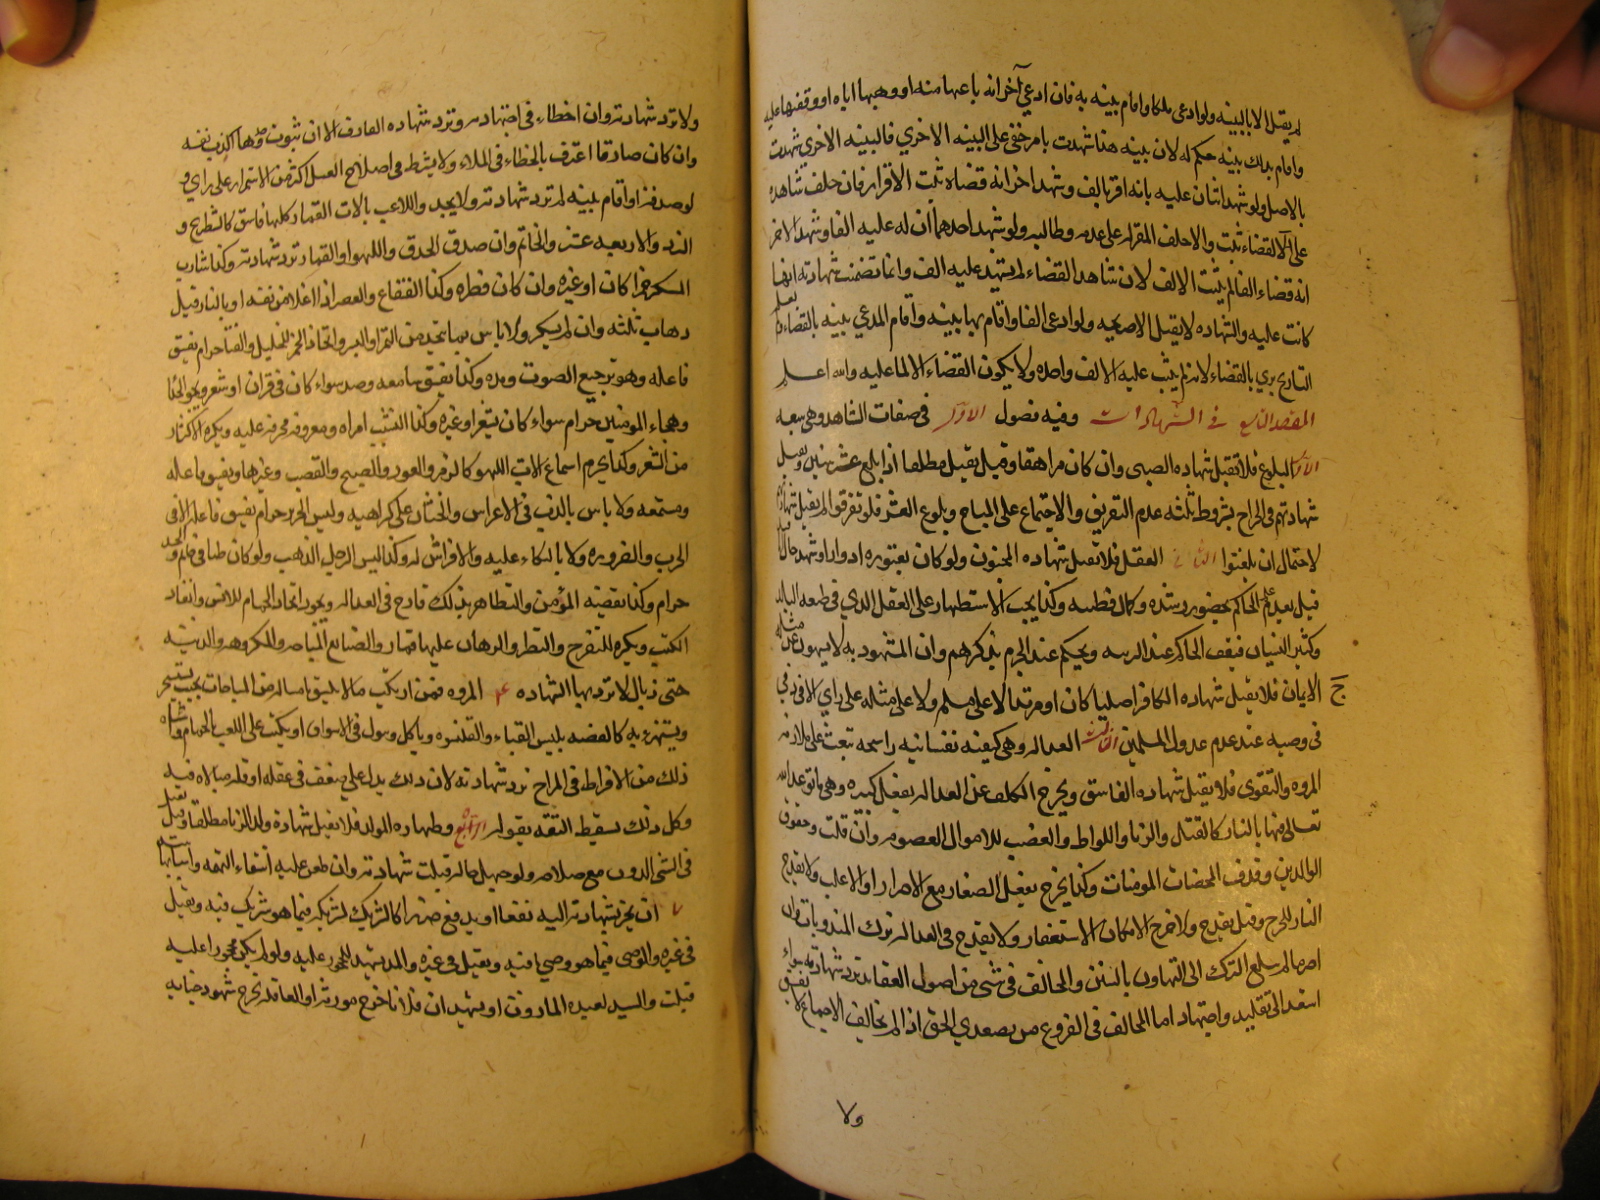 لم يقبل الا بالبينه ولو ادعى ملكا واقام بينه به فان ادعى آخر انه باعها منه او وهبها اياه او وقفها عليه
واقام بذلك بينه حكم له لان بينه هذا شهدت بامر خفي على البينه الاخرى فالبينه الاخرى شهدت
بالاصل ولو شهد اثنان عليه بانه اقر بالف وشهد اخر انه قضاه ثبت الاقرار فان حلف مع شاهده
على القضاء ثبت والا حلف المقر له على عدمه وطالبه ولو شهد احدهما ان له عليه الفا وشهد الاخر
انه قضاه الفا لم يثبت الالف لان شاهد القضاء لم يشهد عليه الف وانما تضمنت شهادته انها
كانت عليه والشهاده لا يقبل الا صريحه ولو ادعى الفا واقام بها بينه واقام المدعي بينه بالقضاء ولم يعلم
التاريخ بري بالقضاء لانه لم يثبت عليه الا الف واحده ولا يكون القضاء الا لما عليه والله اعلم
المقصد التاسع في الشهادات وفيه فصول الاول في صفات الشاهد وهي سبعه
الاول البلوغ فلا تقبل شهاده الصبي وان كان مراهقا وقيل يقبل مطلقا اذا بلغ عشر سنين ويقبل
شهادتهم في الجراح بشروط ثلثه عدم التفريق والاجتماع على المباح وبلوغ العشر فلو تفرقوا لم يقبل شهادتهم
لاحتمال ان يلقنوا الثاني العقل فلا تقبل شهاده المجنون ولو كان يعتوره ادوارا وشهد حال افاقته
قبل بعد علم الحاكم بحضور رشده وكمال فطنته وكذا يجب الاستظهار على المغفل الذي في طبعه البله
وكثير النسيان فيقف الحاكم عند الريبه ويحكم عند الجزم بذكرهم وان المشهود به لا يسهون عن مثله
ج الايمان فلا يقبل شهاده الكافر اصليا كان او مرتدا لا على مسلم ولا على مثله على راي الا في ذمي
في وصيه عند عدم عدول المسلمين الثالث العداله وهي كيفيه نفسانيه راسخه تبعث على ملازمه
المروه والتقوى فلا يقبل شهاده الفاسق ويخرج المكلف عن العداله بفعل كبيره وهي ما توعد الله
تعالى فيها بالنار كالقتل والزنا واللواط والغصب للاموال المعصومه وان قلت وعقوق
الوالدين وقذف المحصنات المومنات وكذا يخرج بفعل الصغار مع الاصرار او الاغلب ولا يقدح
النادر للحرج وقيل يقدح ولا حرج لامكان الاستغفار ولا يقدح في العداله ترك المندوبات وان
اصر ما لم يبلغ الترك الى التهاون بالسنن والمخالف في شئ من اصول العقايد ترد شهادته سواء
استند الى تقليد او اجتهاد اما المخالف في الفروع من معتقدي الحق اذا لم يخالف الاجماع لا يفسق
ولا
ولا ترد شهادته وان اخطاء في اجتهاده وترد شهاده القاذف الا ان يتوب وحدها اكذاب نفسه
وان كان صادقا اعترف بالخطاء في الملاء ولا يشترط في اصلاح العمل اكثر من الاستمرار على راي و
لو صدقه او اقام بينه لم ترد شهادته ولا يحد واللاعب بالات القمار كلها فاسق كالشطرنج و
النرد والاربعه عشر والخاتم وان قصد الحذق واللهو او القمار ترد شهادته وكذا شارب
المسكر خمرا كان او غيره وان كان قطره وكذا الفقاع والعصير اذا غلا من نفسه او بالنار قبل
ذهاب ثلثه وان لم يسكر ولا باس بما يتخذ من التمر او البسر واتخاذ الخمر للتخليل والغنا حرام يفسق
فاعله وهو ترجيع الصوت ومده وكذا يفسق سامعه قصدا سواء كان في قران او شعر ويجوز الحداء
وهجاء المومنين حرام سواء كان بشعر او غيره وكذا التشبيب بامراه معروفه محرمه عليه ويكره الاكثار
من الشعر وكذا يحرم استماع الات اللهو كالزمر والعود والصنج والقصب وغيرها ويفسق فاعله
ومستمعه ولا باس بالدف في الاعراس والختان على كراهيه ولبس الحرير حرام يفسق فاعله الا في
الحرب والضروره ولا باس بالتكاء عليه والافتراش له وكذا لبس الرجل الذهب ولو كان طليا في خاتم والحسد
حرام وكذا بغضه المؤمن والتظاهر بذلك قادح في العداله ويجوز اتخاذ الحمام للانس وانفاذ
الكتب ويكره للتفرج والتطير والرهان عليها قمار والصنايع المباحه والمكروهه والدنيه
حتى الزبال لا ترد بها الشهاده ۴ المروه فمن ارتكب ما لا يليق بامثاله من المباحات بحيث يسخر
ويستهزء به كالفقيه يلبس القباء والقلنسوه وياكل ويبول في الاسواق او يكب على اللعب بالحمام واشباه
ذلك من الافراط في المزاح ترد شهادته لان ذلك يدل على ضعف في عقله او قله مبالاه فيه
وكل ذلك يسقط الثقه بقوله الرابع طهاره المولد فلا يقبل شهادة ولد الزنا مطلقا وقيل يقبل
في الشئ الدون مع صلاحه ولو جهل حاله قبلت شهادته وان طعن عليه انتفاء التهمه واسبابها سته
ا ان يجر بشهادته اليه نفعا او يدفع ضررا كالشريك لشريكه فيما هو شريك فيه ويقبل
في غيره والوصي فيما هو وصي فيه ويقبل في غيره والمدين يشهد للمحجور عليه ولو لم يكن محجورا عليه
قبلت والسيد لعبده الماذون او يشهد ان فلانا جرح مورثه او العاقله تجرح شهود جنايه